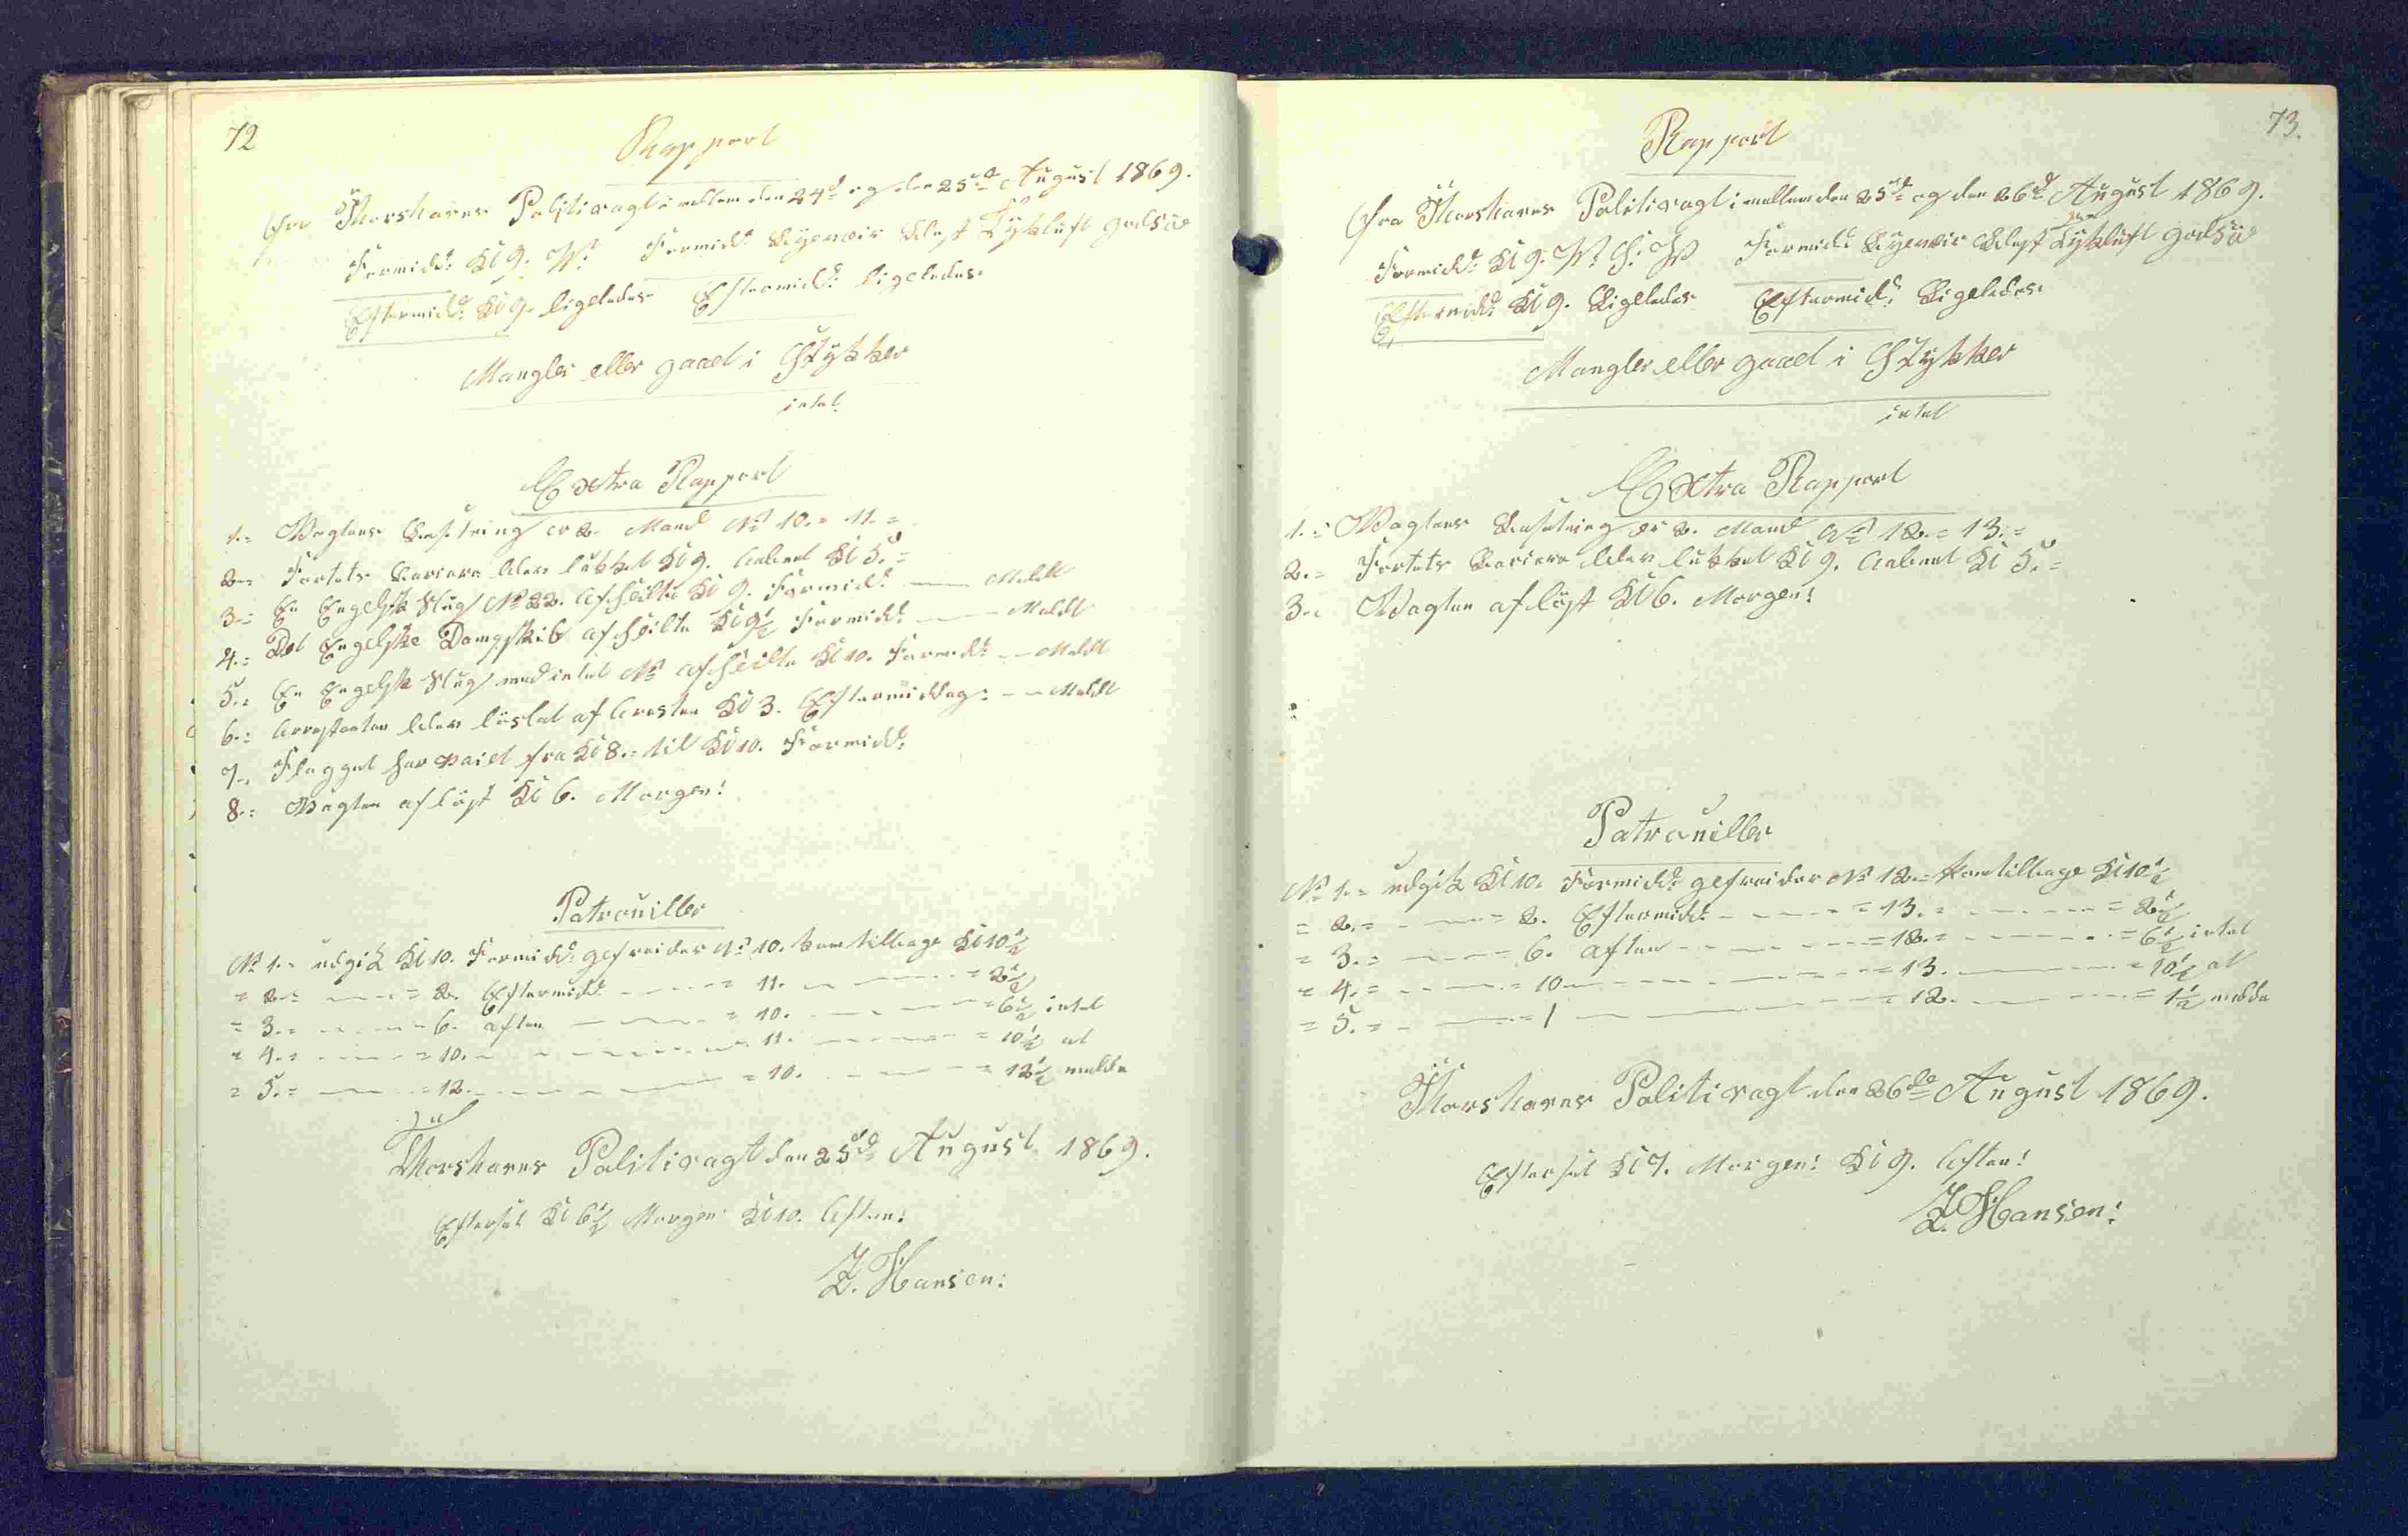 72
Rapport
fra Thorshavns Politivagt i mellem den 24d og den 25de August 1869.
Formidd: Kl 9. N. Formidd: Bygeveir Blæst Tyk luft godsøe
Eftermidd: Kl 9. ligeledes Eftermidd: ligeledes.
Mangler eller gaaet i Stykker
intet
Extra Rapport
1.= Vagtens Besætning er 2. Mand No 10. = 11. =
2.= Fortets Bariere blev lukket Kl 9. Aabnet Kl 5. =
3.= En Engelsk Slup No 22. afseilte Kl 9. Formidd: — Meldt
4.= Det Engelske Dampskib afseilte Kl 9½ Formidd: — Meldt
5.= En Engelsk Slup med intet No afseilte Kl 10. Formidd: — Meldt
6.= Arrestanten blev løslat af Aresten Kl 3. Eftermiddag: — Meldt
7.= Flagget har vaiet fra Kl 8. = til Kl 10. Formidd:
8.= Vagten afløst Kl 6. Morgen!
Patrouiller
No 1. = udgik Kl 10. Formidd: gefreider No 10. kom tilbage Kl 10½
= 2. = — = 2. Eftermidd: — = 11. — = 2½
= 3. = — = 6. aften — = 10. — = 6½ intet
= 4. = — = 10. — = 11. — = 10½ at
= 5. = — = 12. — = 10. — = 12½ melde
Thorshavns Politivagt den 25de August 1869.
Efterset Kl 6½ Morgen Kl 10. Aften!
Z. Hansen:
73.
Rapport
fra Thorshavns Politivagt i mellem den 25de og den 26d August 1869.
Formidd: Kl 9. N. Formidd: Bygeveir Blæst Tyk luft godsøe
Eftermidd: Kl 9. Ligeledes Eftermidd: Ligeledes.
Mangler eller gaaet i Stykker
intet
Extra Rapport
1.= Vagtens Besætning er 2. Mand No 12. = 13. =
2.= Fortets Bariere blev lukket Kl 9. Aabnet Kl 5. =
3.= Vagten afløst Kl 6. Morgen!
Patrouiller
No 1. = udgik Kl 10. Formidd: gefreider No 12. = kom tilbage Kl 10½
= 2. = — = 2. Eftermidd: — = 13. = — = 2½
= 3. = — = 6. aften — = 12. = — = 6½ intet
= 4. = — = 10 — = 13. — = 10½ at
= 5. = — = 1 — = 12. — = 1½ melde
Thorshavns Politivagt den 26de August 1869.
Efterset Kl 7. Morgen! Kl 9. Aften!
Z. Hansen: